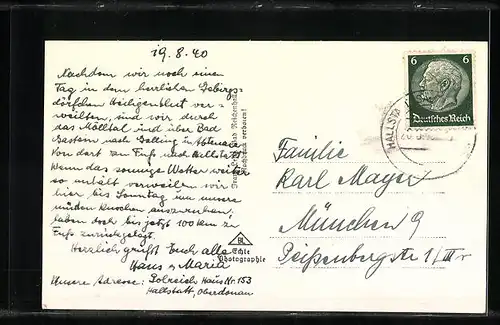 19.8.40
Nachdem wir noch einen
Tag in dem herrlichen Gebirgs-
dörfchen Heiligenblut ver-
weilten, sind wir durch
das Mölltal und über Bad
Gastein nach Golling in
Von dort zu Fuß nach Hallstatt.
Wenn das sonnige Wetter weiter
so anhält verweilen wir
hier bis Sonntag um unsere
müden Knochen auszuruhen,
haben doch bis jetzt 100 km zu
Fuß zurückgelegt.
Herzlich grüßt Euch alle
Hans u. Maria
Unsere Adresse: Haus Nr. 153
Hallstatt, Oberdonau
Bad Reichenhall
Nachdruck verboten!
Echte
Photographie
6 6
Deutsches Reich
HALLSTA
Familie
Karl Mayer
München 9